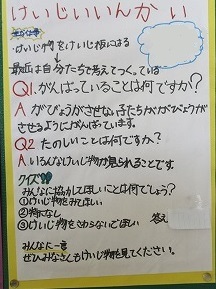 けいじいいんかい
けいじ物をけいじ板にはる
↓
最近は自分たちで考えてつくっている
Q1.がんばっていることは何ですか?
A がびょうがさせない子たちがががびょうが
させるようにがんばっています。
Q2 たのしいことは何ですか?
A いろんなけいじ物が見られることです。
クイズ!!
みんなに協力してほしいことは何でしょう?
①けいじ物をみてほしい
②特になし
③けいじ物をさわらないでほしい 答え
みんなに一言
ぜひみなさんもけいじ物を見てください。